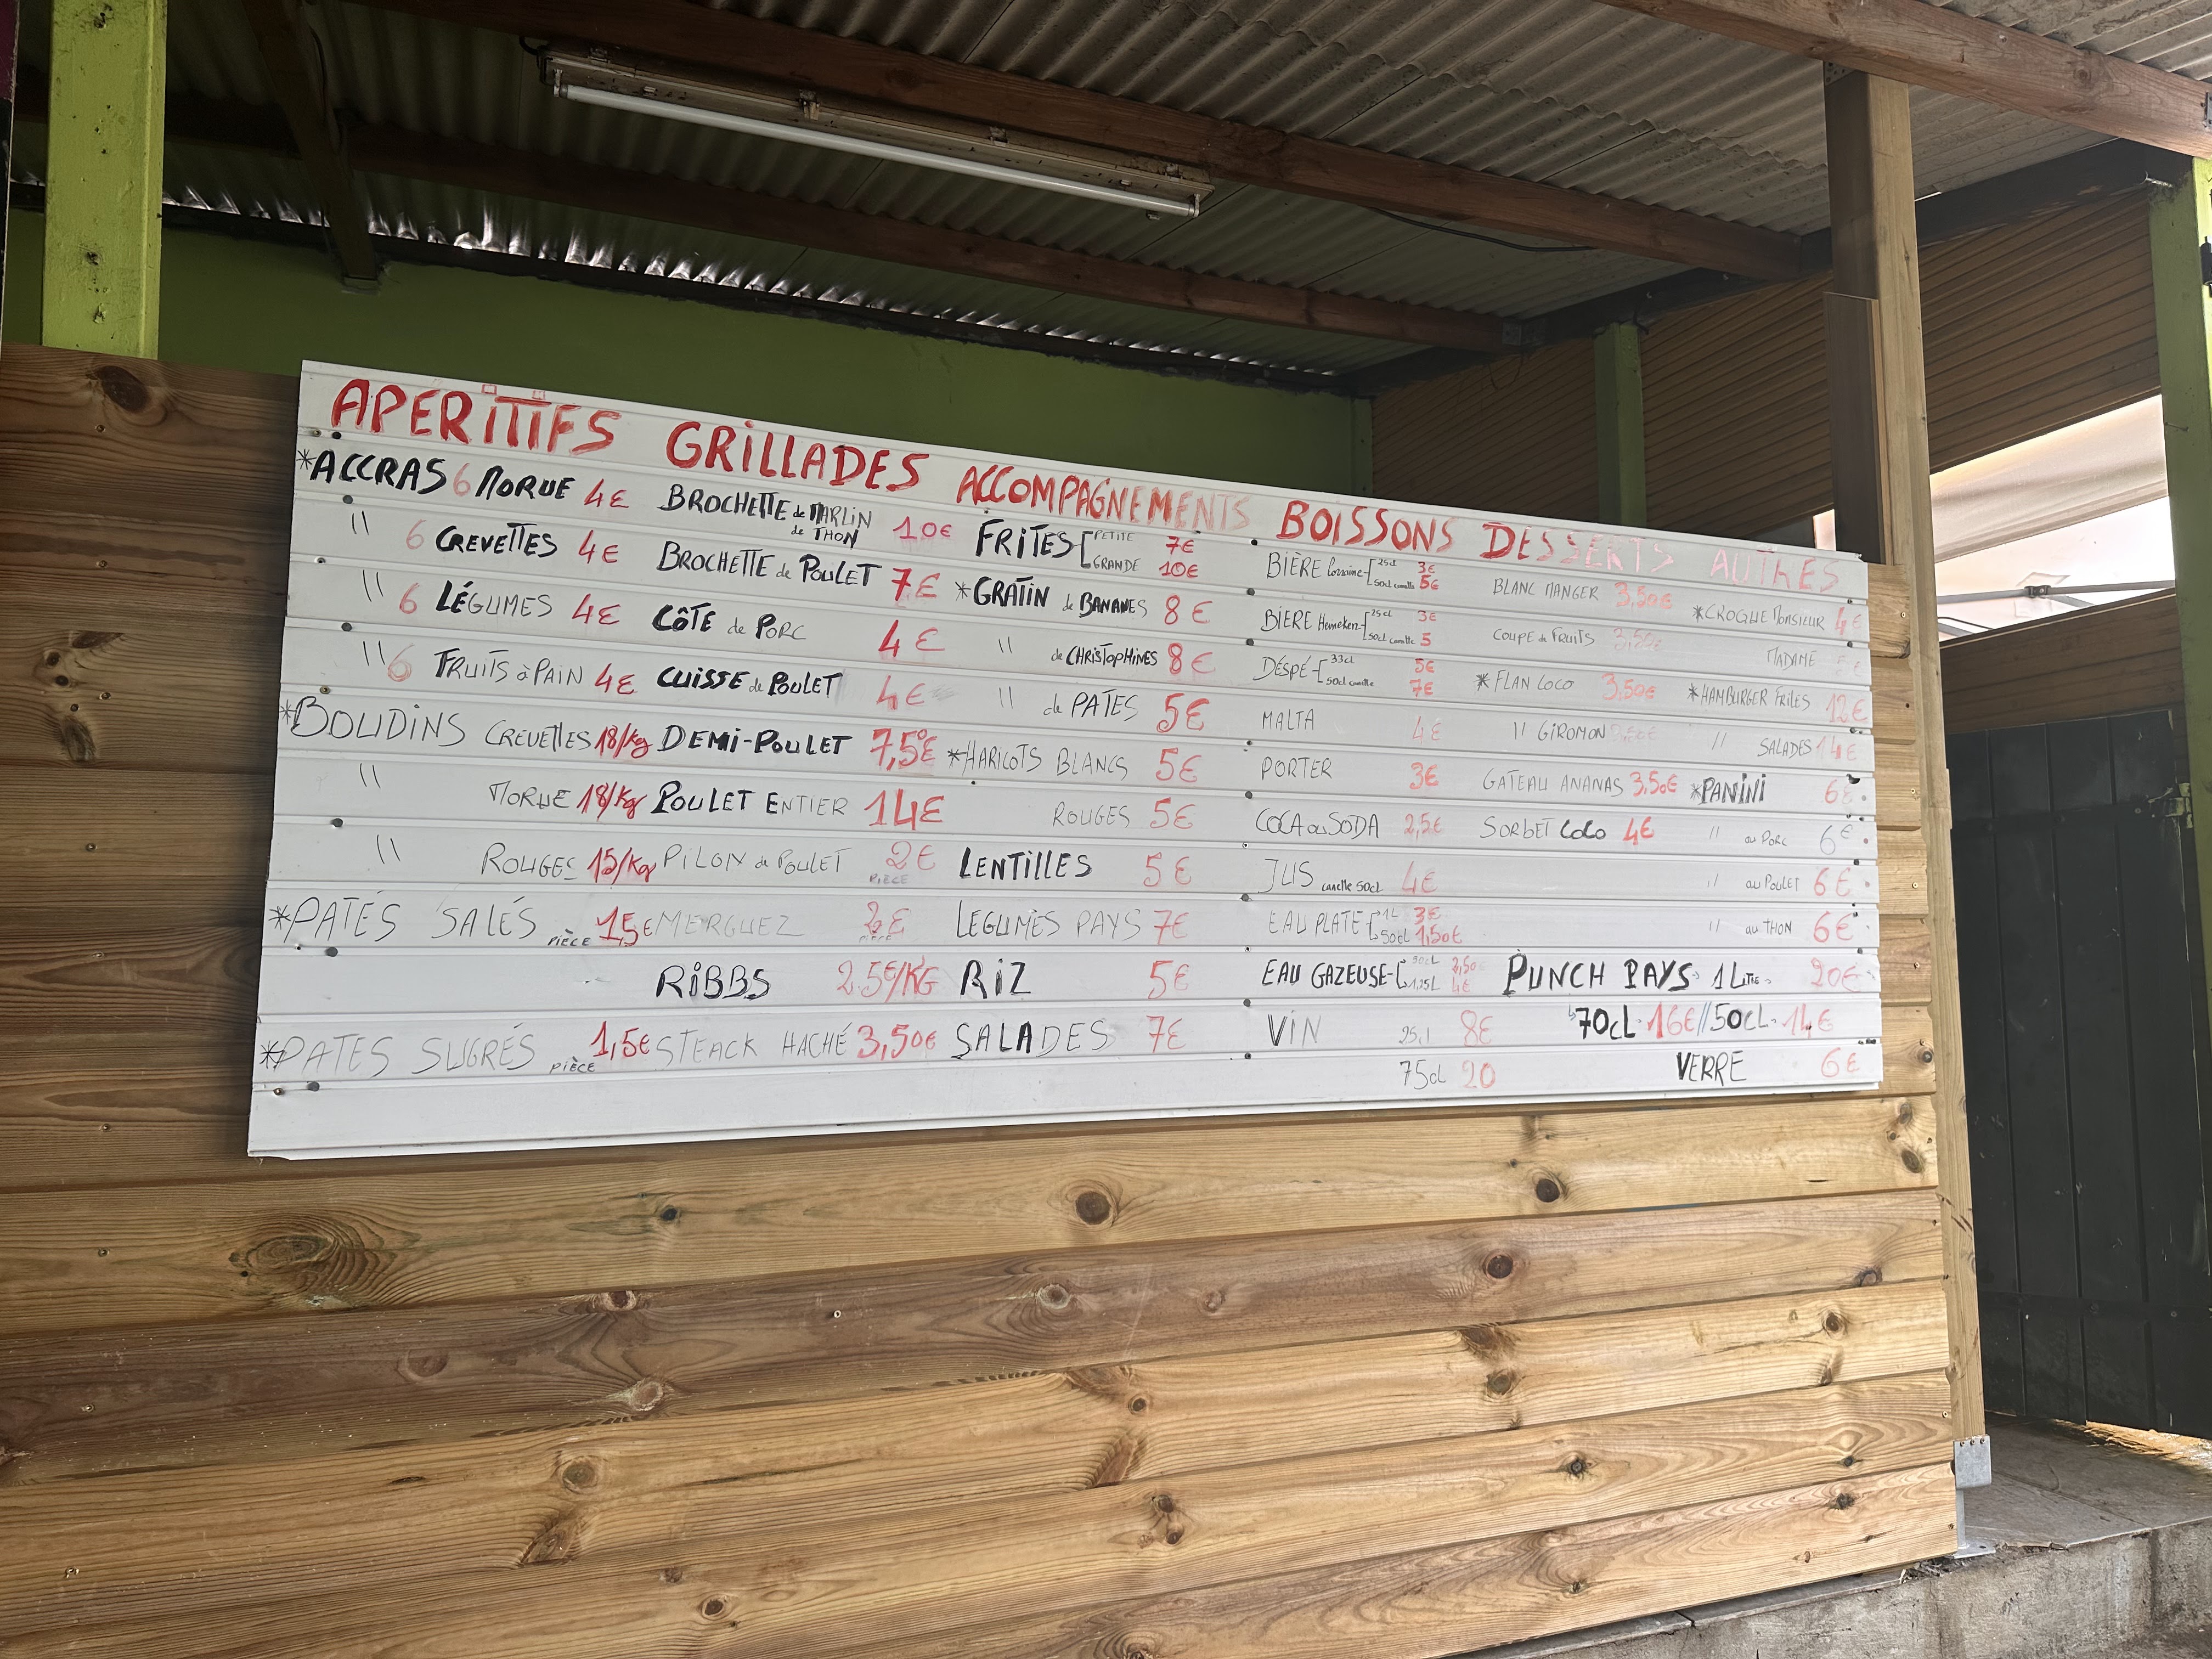 APERITIFS
*ACCRAS 6 MORUE 4€
" 6 CREVETTES 4€
" 6 LÉGUMES 4€
" 6 FRUITS à PAIN 4€
*BOUDINS CREVETTES 18/Kg
" MORUE 18/Kg
" ROUGES 15/Kg
*PATÉS SALÉS PIÈCE 1,5€
*PATES SUCRÉS PIÈCE 1,5€
GRILLADES
BROCHETTE de MARLIN
de THON 10€
BROCHETTE de POULET 7€
CÔTE de PORC 4€
CUISSE de POULET 4€
DEMI-POULET 7,5€
POULET ENTIER 14€
PILON de POULET 2€
PIÈCE
MERGUEZ
PIÈCE
RIBBS 25€/KG
STEACK HACHÉ 3,50€
ACCOMPAGNEMENTS
FRITES PETITE 7€
GRANDE 10€
*GRATIN de BANANES 8€
" de CHRISTOPHINES 8€
" de PATES 5€
*HARICOTS BLANCS 5€
ROUGES 5€
LENTILLES 5€
LEGUMES PAYS 7€
RIZ 5€
SALADES 7€
BOISSONS
BIÈRE Lorraine 25cl 3€
50cl canette 5€
BIERE Heineken 25cl 3€
50cl canette 5
DÉSPÉ 33cl 5€
50cl canette 7€
MALTA 4€
PORTER 3€
COCA ou SODA 2,5€
JUS canette 50cL 4€
EAU PLATE 1L 3€
50cL 1,50€
EAU GAZEUSE 50cL 2,50
1,25L 4€
VIN 8€
75cL 20
DESSERTS
BLANC MANGER 3,50€
COUPE de FRUITS
*FLAN COCO 3,50€
" GIROMON
GATEAU ANANAS 3,50€
SORBET COCO 4€
AUTRES
*CROQUE MONSIEUR 4€
MADAME
*HAMBURGER FRITES 12€
" SALADES 14€
*PANINI 6€
" au PORC 6€
" au POULET 6€
" au THON 6€
PUNCH PAYS 1 Litre 20€
70cL 16€ // 50cL 14€
VERRE 6€